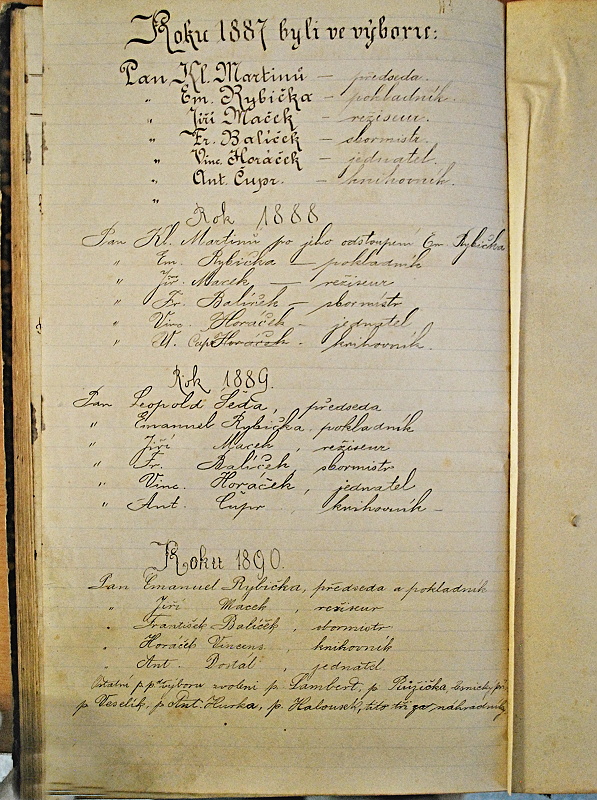 Roku 1887 byli ve výboru:
Pan Kl. Martinů – předseda.
„ Em. Rybička – pokladník.
„ Jiří Maček – režiseur.
„ Fr. Balíček – sbormistr.
„ Vinc. Horáček – jednatel.
„ Ant. Čupr. – knihovník.
„
Rok 1888
Pan Kl. Martinů po jeho odstoupení Em. Rybička
„ Em. Rybička – pokladník
„ Jiř. Macek – režiseur
„ Fr. Balíček – sbormistr
„ Vinc. Horáček – jednatel
„ Čupr Horáček – knihovník.
Rok 1889.
Pan Leopold Šeda, předseda
„ Emanuel Rybička, pokladník
„ Jiří Macek, režiseur
„ Fr. Balíček, sbormistr
„ Vinc. Horáček, jednatel
„ Ant. Čupr, knihovník –
Roku 1890.
Pan Emanuel Rybička, předseda a pokladník
„ Jiří Macek, režiseur
„ František Balíček, sbormistr
„ Horáček Vincenc, knihovník
„ Ant. Dostal, jednatel
Ostatní p.p. výboru zvoleni p. Lambert, p. Růžička, lesnický
p. Veselík, p. Ant. Hurka, p. Halousek, tito tři za náhradníky